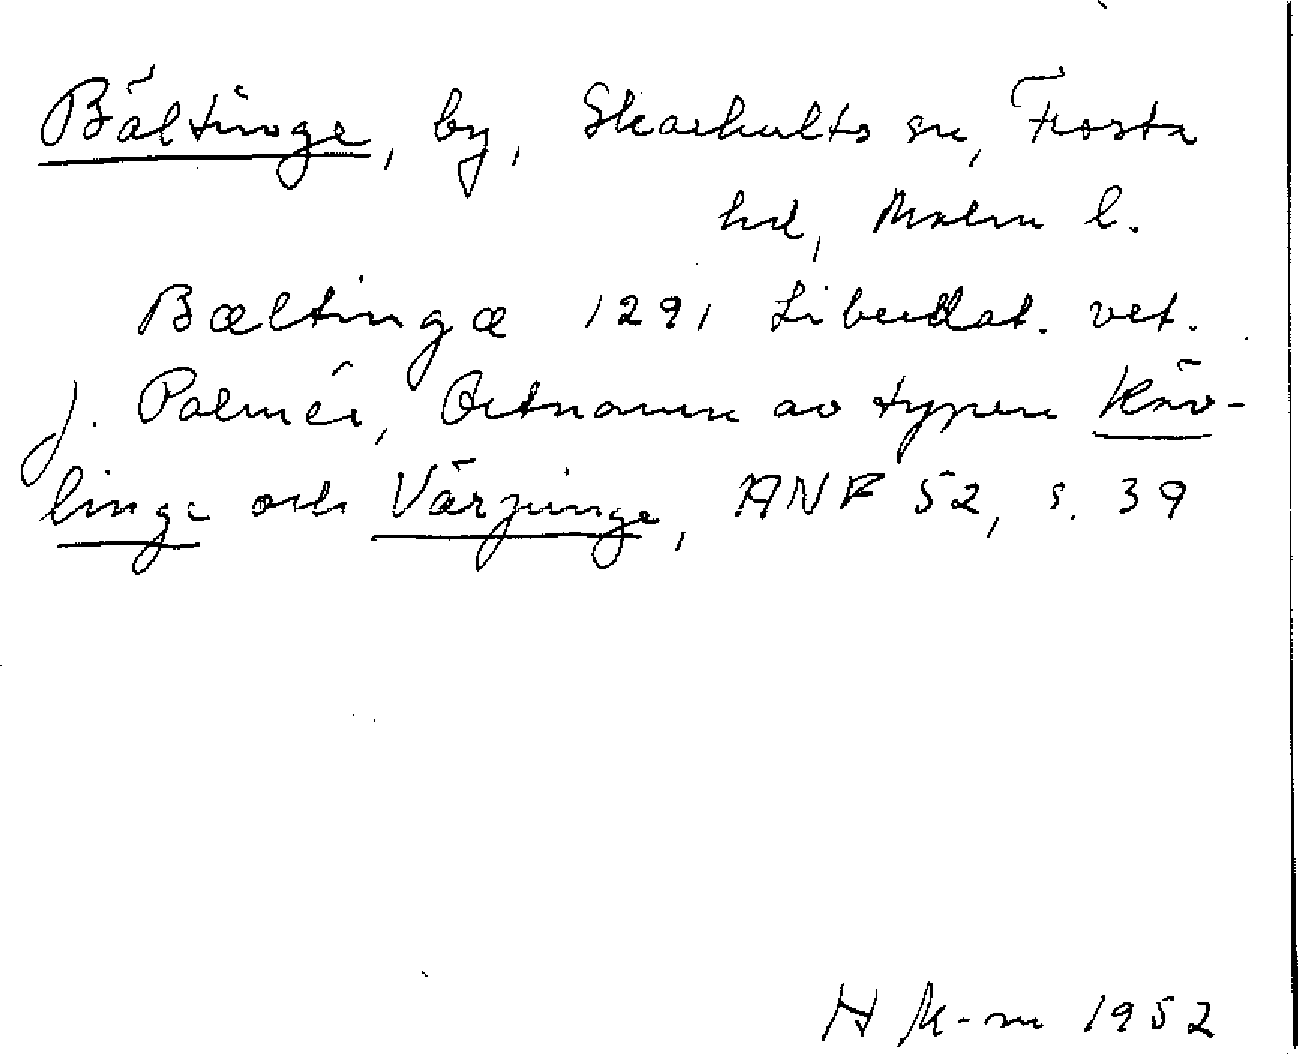 Bältinge, by, Skarhults sn, Frosta
hd, Malm l.
Bæltingæ 1291 Liberdat. vet.
J. Palmér, Ortnamn av typen Käv-
linge och Värpinge, ANF 52, s. 39
H K-m 1952